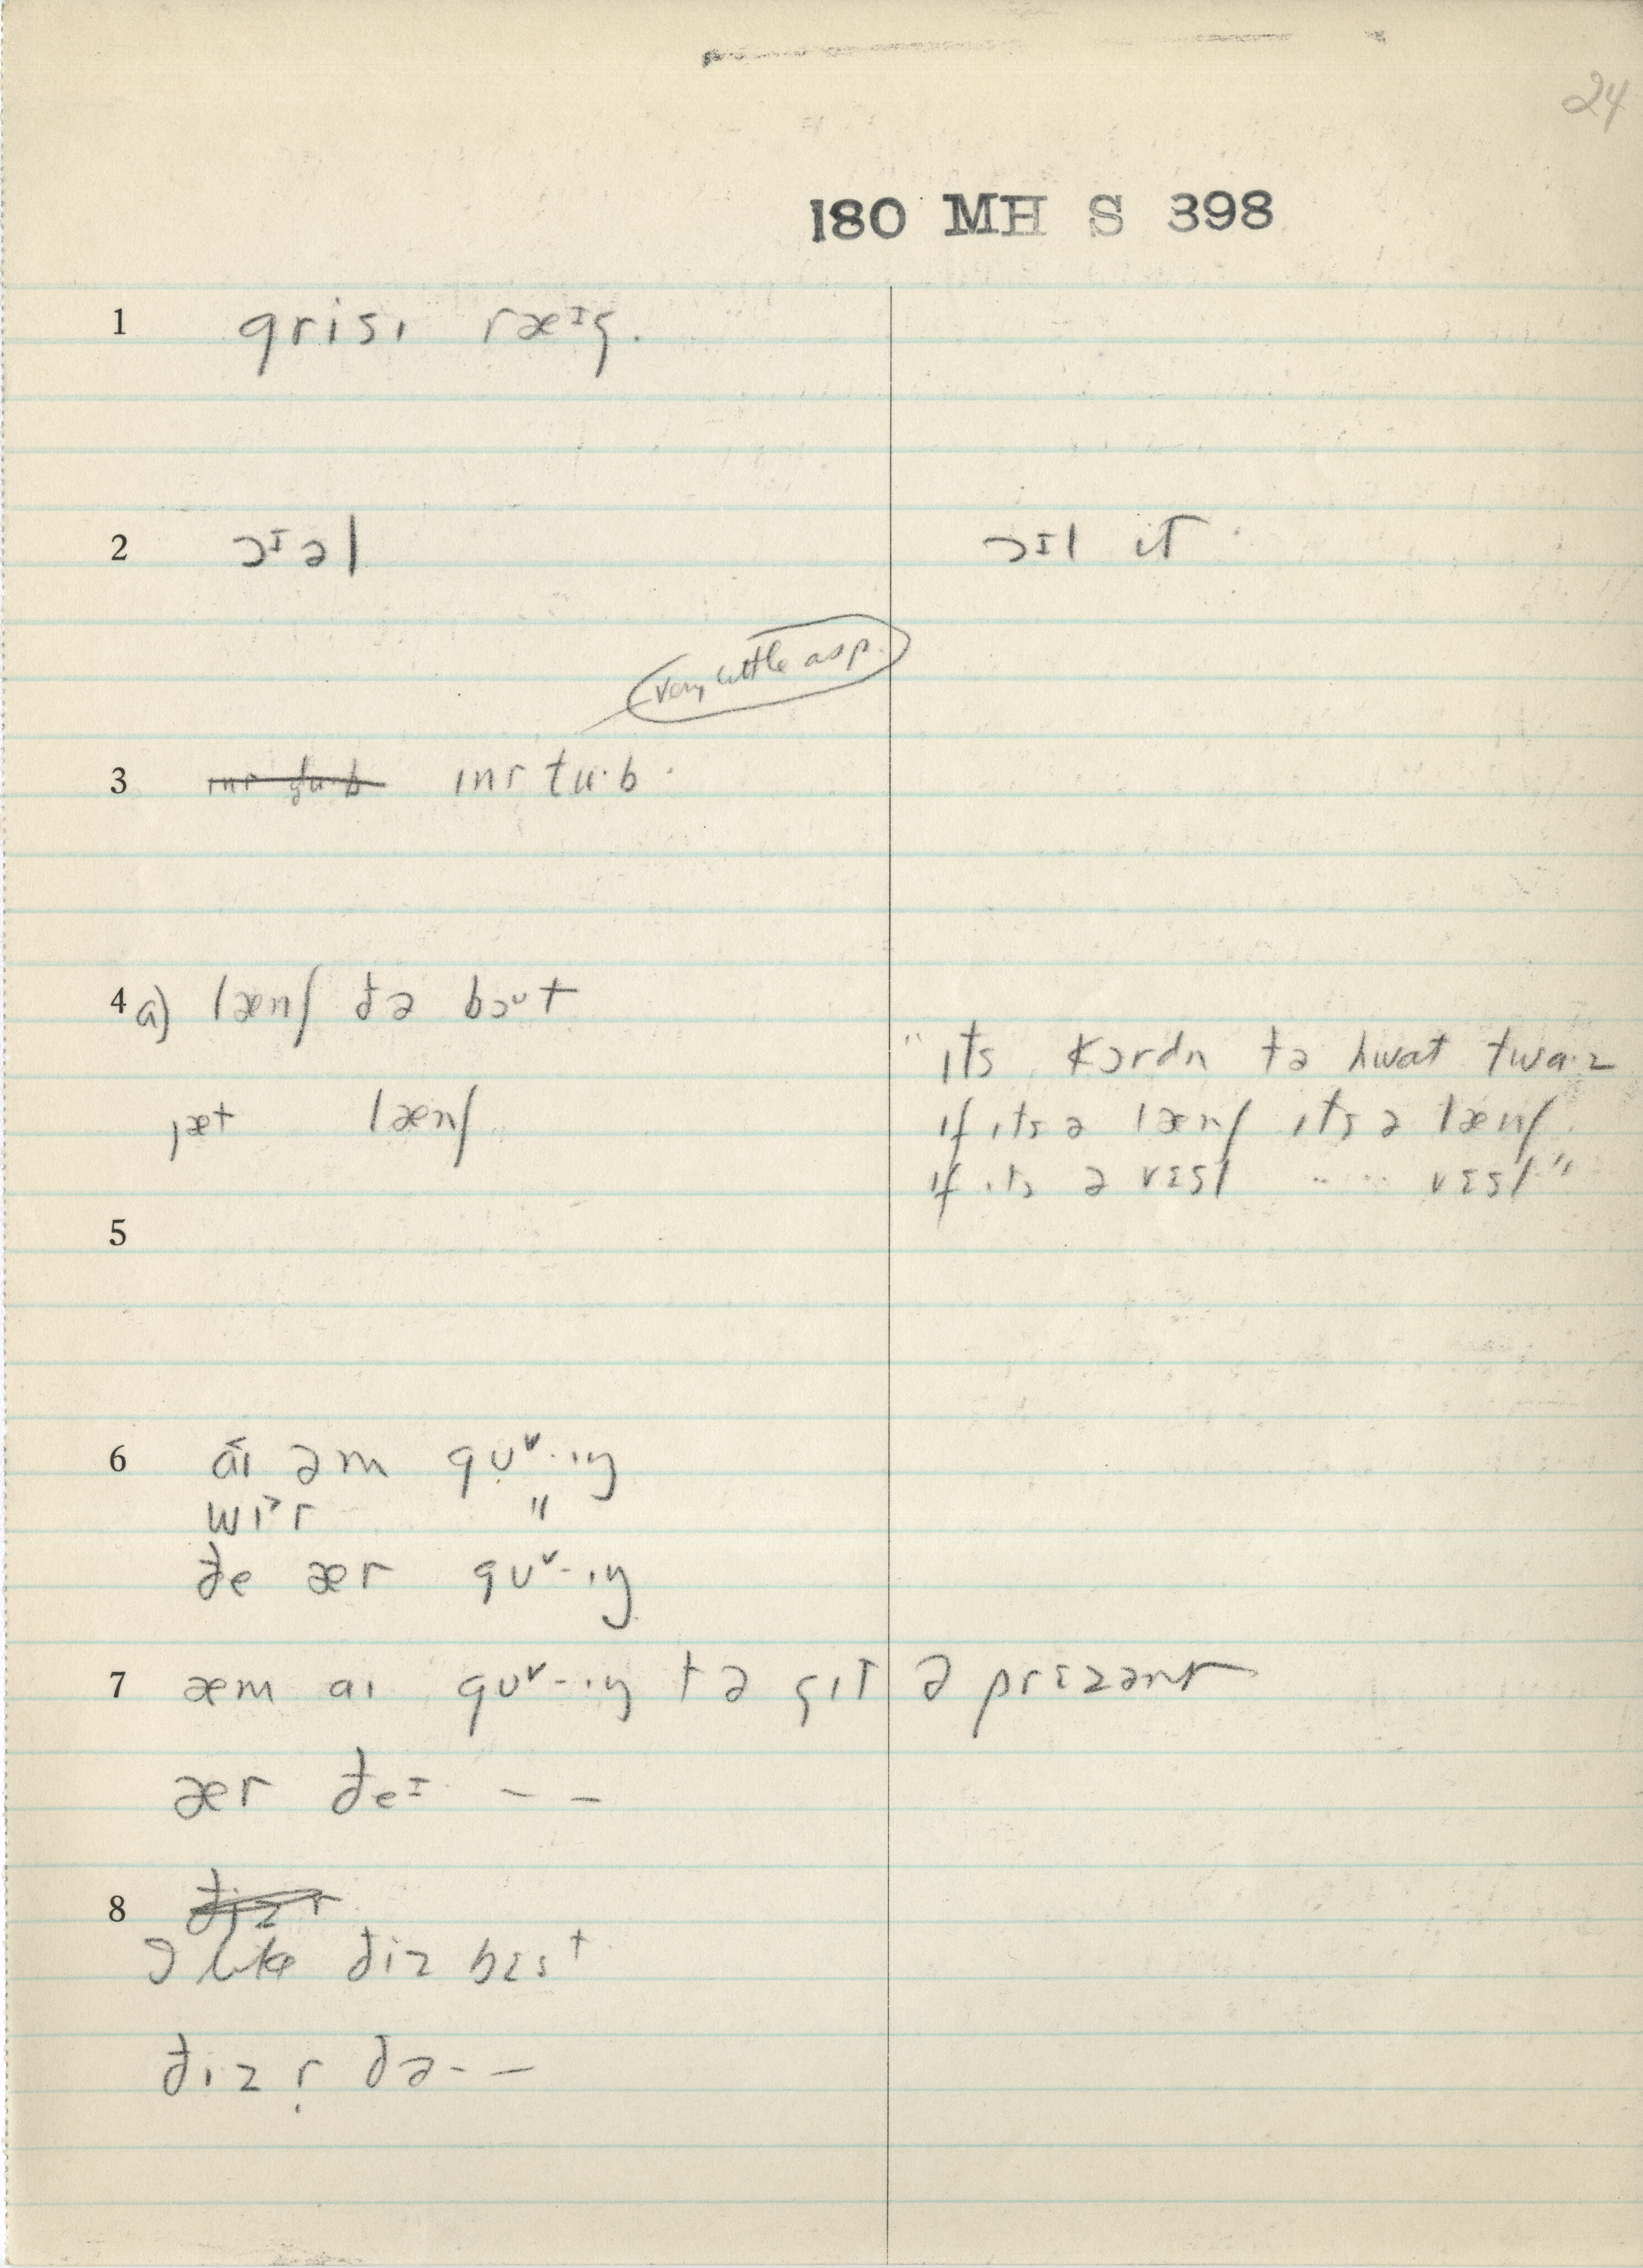 24
180 MH S 398
1 grisɪ ræᶦg.
2 ɔᶦəl ɔᶦl it
very little asp.
3 ɪnr tu·b
4 a) lænʃ ðə bəᶷt
"ɪts kɔrdn tə hwat twa·z
jæt lænʃ if ɪts ə lænʃ ɪts ə lænʃ
if ɪts ə vɛsl ·· ·· vɛsl"
5
6 a˂ɪ əm gʊ˅·ɪŋ
wɪ˃r "
ðe ær gʊ˅-·ɪŋ
7 æm aɪ gʊ˅-·ɪŋ tə gɪt ə prɛzənt
ær ðeᶦ – –
8 ðizr
I like ðiz bɛst
ðiz r̩ ðə- –